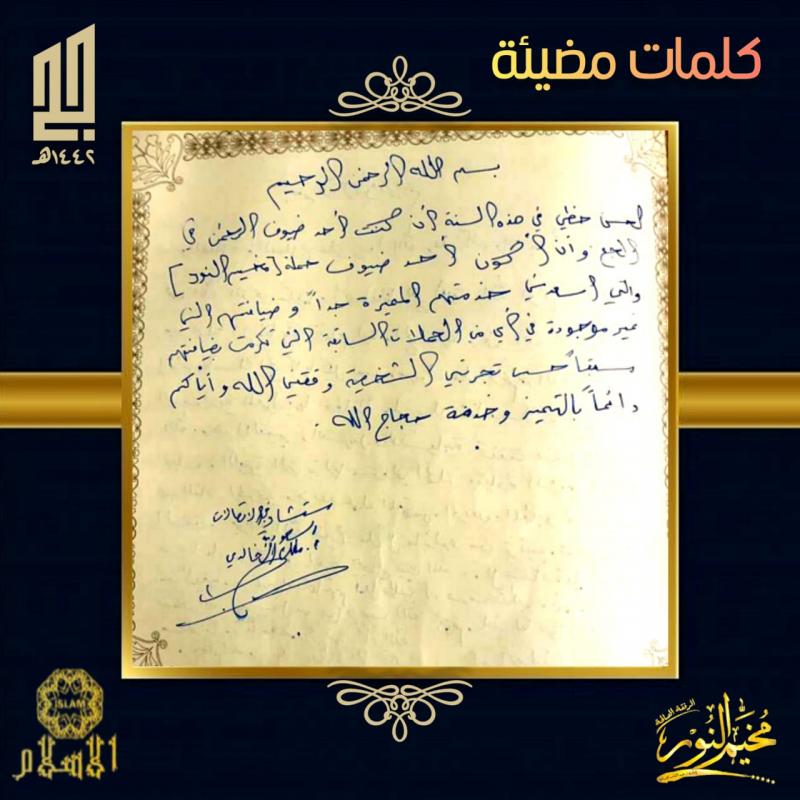 كلمات مضيئة
الحج
١٤٤٢هـ
بسم الله الرحمن الرحيم
لحسن حظي في هذه السنة أن كنت أحد ضيوف الرحمن في
الحج وأن أكون أحد ضيوف حملة [مخيم النور]
والتي أسعدتني خدمتهم المميزة جداً وضيافتهم التي
غير موجودة في أي من الحملات السابقة التي تكرمت بضيافتهم
سابقاً حسب تجربتي الشخصية وفقني الله وأياكم
دائماً بالتميز وخدمة حجاج الله .
مستشار
السعودية
الخالدي
ISLAM
الاسلام
مخيم النور